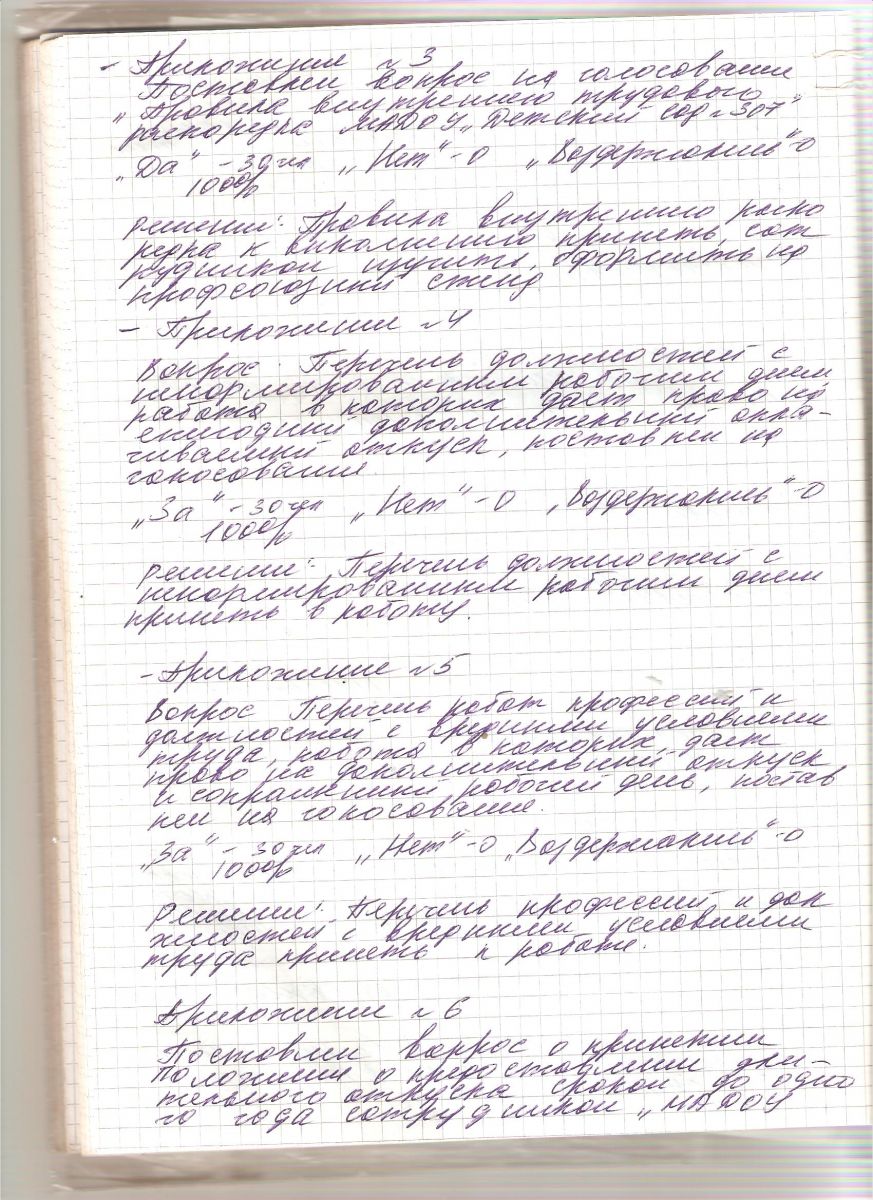 - Приложение № 3
Поставлен вопрос на голосование
„Правила внутреннего трудового
распорядка МАДОУ „Детский сад № 307"
„Да" – 30 чел „Нет" – 0 „Воздержались" – 0
100%
Решение: Правила внутреннего распо
рядка к исполнению принять, сот
рудникам изучить, оформить на
профсоюзный стенд
- Приложение № 4
Вопрос: Перечень должностей с
ненормированным рабочим днем,
работа в которых дает право на
ежегодный дополнительный опла-
чиваемый отпуск, поставлен на
голосование.
„За" – 30 чел „Нет" – 0 „Воздержались" – 0
100%
Решение: Перечень должностей с
ненормированным рабочим днем
принять в работу.
- Приложение № 5
Вопрос Перечень работ профессий и
должностей с вредными условиями
труда, работа в которых, дает
право на дополнительный отпуск
и сокращенный рабочий день, постав
лен на голосование.
„За" – 30 чел „Нет" – 0 „Воздержались" – 0
100%
Решение: Перечень профессий и дол
жностей с вредными условиями
труда принять к работе.
Приложение № 6
Поставлен вопрос о принятии
положения о предоставлении дли-
тельного отпуска сроком до одно
го года сотрудникам „МАДОУ